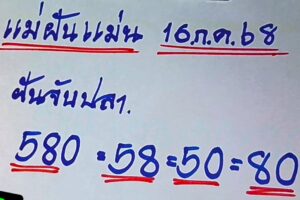 แม่ฝันแม่น 16 ก.ค. 68
ฝันจับปลา.
580 = 58 = 50 = 80